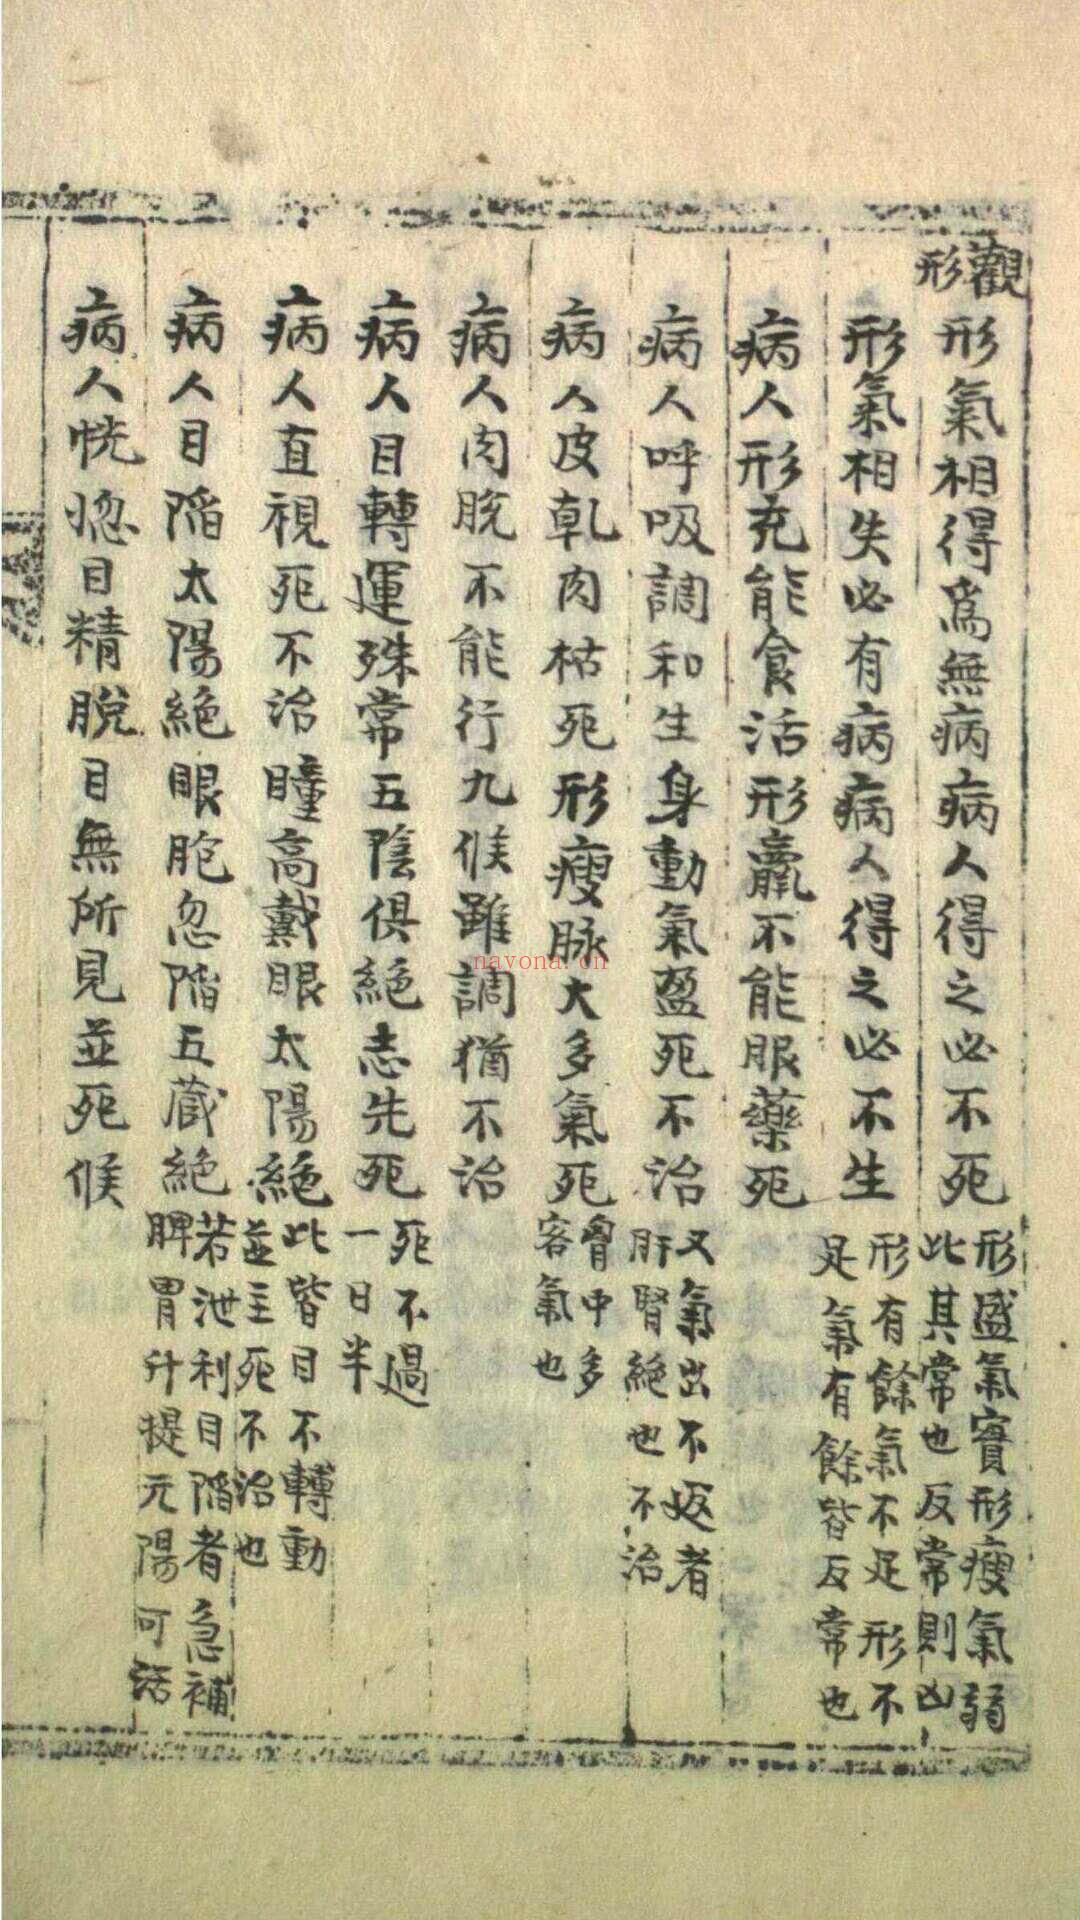 觀形
形氣相得爲無病病人得之必不死
形盛氣實形瘦氣弱
此其常也反常則凶
形氣相失必有病病人得之必不生
形有餘氣不足形不
足氣有餘皆反常也
病人形充能食活形羸不能服藥死
病人呼吸調和生身動氣盈死不治
又氣出不返者
肝腎絕也不治
病人皮乾肉枯死形瘦脉大多氣死
胷中多
客氣也
病人肉脫不能行九候雖調猶不治
病人目轉運殊常五陰俱絕志先死
死不過
一日半
病人直視死不治瞳高戴眼太陽絕
此皆目不轉動
並主死不治也
病人目陷太陽絕眼胞忽陷五蔵絕
若泄利目陷者急補
脾胃升提元陽可活
病人恍惚目精脫目無所見並死候
navona.cn